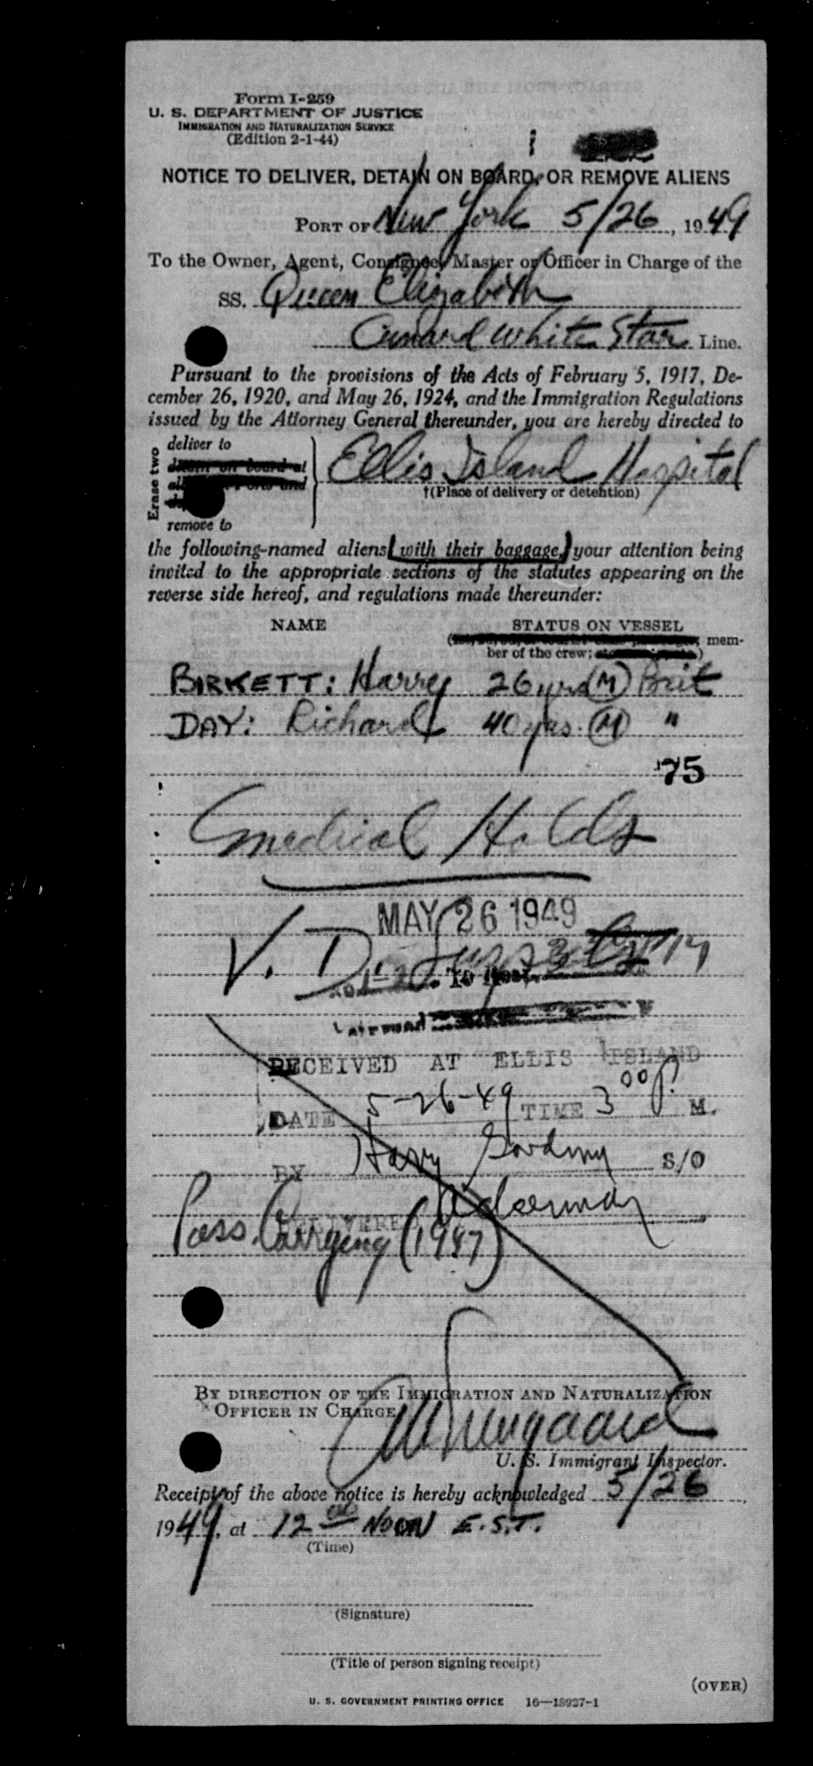 Form I-259
U. S. DEPARTMENT OF JUSTICE
IMMIGRATION AND NATURALIZATION SERVICE
(Edition 2-1-44)
NOTICE TO DELIVER, DETAIN ON BOARD, OR REMOVE ALIENS
PORT OF New York 5/26, 1949
To the Owner, Agent, Consignee, Master or Officer in Charge of the
SS. Queen Elizabeth
Cunard White Star Line.
Pursuant to the provisions of the Acts of February 5, 1917, De-
cember 26, 1920, and May 26, 1924, and the Immigration Regulations
issued by the Attorney General thereunder, you are hereby directed to
Erase two
deliver to
remove to
Ellis Island Hospital
†(Place of delivery or detention)
the following-named aliens (with their baggage,) your attention being
invited to the appropriate sections of the statutes appearing on the
reverse side hereof, and regulations made thereunder:
NAME STATUS ON VESSEL
mem-
ber of the crew;
BIRKETT: Harry 26 yrs (M) Brit
DAY: Richard 40 yrs. (M) "
75
Medical Holds
MAY 26 1949
V. D.
RECEIVED AT ELLIS ISLAND
DATE 5-26-49 TIME 3 00 P. M.
BY Harry S/O
DELIVERED
Pass. Carrying (1947)
BY DIRECTION OF THE IMMIGRATION AND NATURALIZATION
OFFICER IN CHARGE
U. S. Immigrant Inspector.
Receipt of the above notice is hereby acknowledged 5/26,
1949, at 12 00 NOON E.S.T.
(Time)
(Signature)
(Title of person signing receipt)
(OVER)
U. S. GOVERNMENT PRINTING OFFICE 16—18927-1